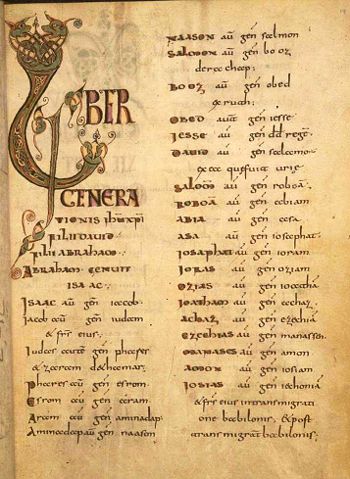 LIBER
GENERA
TIONIS ihu xpi
FILII DAUID
FILII ABRAHAM
ABRAHAM GENUIT
ISAAC
ISAAC aū gen̄ iacob
Iacob aū gen̄ iudam
& fr̄s eius;
Iudas autē gen̄ phares
& zaram de thamar;
Phares aū gen̄ esrom
Esrom aū gen̄ aram
Aram aū gen̄ aminadap
Aminadap aū gen̄ naason
NAASON aū gen̄ salmon
SALMON aū gen̄ booz
de rachap;
BOOZ aū gen̄ obed
ex ruth;
OBED autē gen̄ iesse
IESSE aū gen̄ dd regē
DAUID aū gen̄ salomō
ex ea que fuit urie
SALOMŌ aū gen̄ roboā
ROBOĀ aū gen̄ abiam
ABIA aū gen̄ asa
ASA aū gen̄ iosaphat
IOSAPHAT aū gen̄ ioram
IORAS aū gen̄ oziam
OZIAS aū gen̄ ioatha
IOATHAM aū gen̄ achaz
ACHAZ aū gen̄ ezechiā
EZECHIAS aū gen̄ manassen
MANASSES aū gen̄ amon
AMON aū gen̄ iosiam
IOSIAS aū gen̄ iechoniā
& fr̄s eius in transmigrati
one babilonis; & post
transmigrat babilonis;